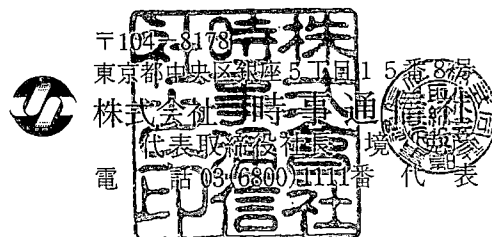 〒104-8178
東京都中央区銀座5丁目15番8号
株式会社 時事通信社
代表取締役社長 境 克彦
電 話 03(6800)1111番 代 表